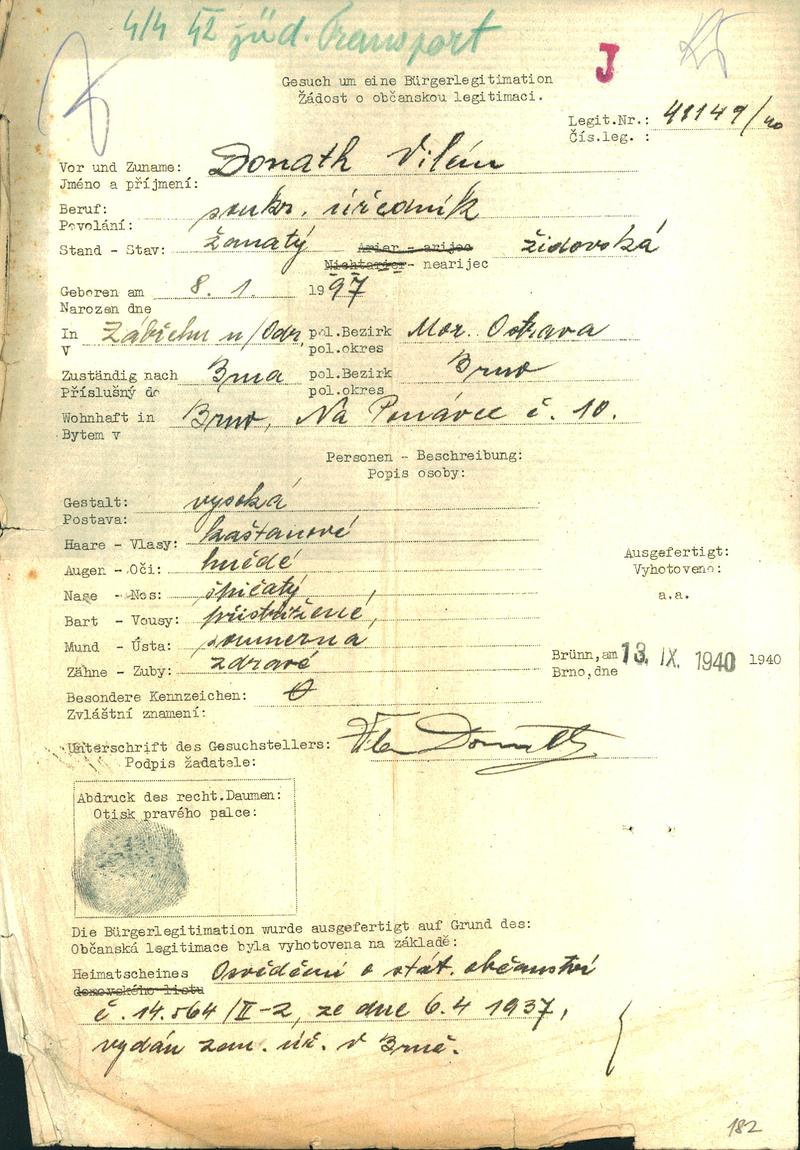 4/4 42 jüd. Transport
J
Gesuch um eine Bürgerlegitimation
Žádost o občanskou legitimaci.
Legit.Nr.: 41149/40
Čís.leg. :
Vor und Zuname: Donath Vilém
Jméno a příjmení:
Beruf: soukr. úředník
Povolání:
Stand - Stav: ženatý Arier - arijec židovská
Nichtarier - nearijec
Geboren am 8. 1. 1897
Narozen dne
In Zábřehu n/Odr. pol.Bezirk Mor. Ostrava
V pol.okres
Zuständig nach Brna pol.Bezirk Brno
Příslušný do pol.okres
Wohnhaft in Brno, Na Ponávce č. 10.
Bytem v
Personen - Beschreibung:
Popis osoby:
Gestalt: vysoká
Postava:
Haare - Vlasy: kaštanové
Augen - Oči: hnědé
Nase - Nos: špičatý
Bart - Vousy: přistřižené
Mund - Ústa: souměrná
Zähne - Zuby: zdravé
Besondere Kennzeichen:
Zvláštní znamení:
Ausgefertigt:
Vyhotoveno:
a.a.
Brünn, am 13. IX. 1940 1940
Brno, dne
Unterschrift des Gesuchstellers: Donath
Podpis žadatele:
Abdruck des recht.Daumen:
Otisk pravého palce:
Die Bürgerlegitimation wurde ausgefertigt auf Grund des:
Občanská legitimace byla vyhotovena na základě:
Heimatscheines Osvědčení o stát. občanství
domovského listu
č. 14.564/II-2, ze dne 6.4 1937,
vydán zem. úř. v Brně.
182